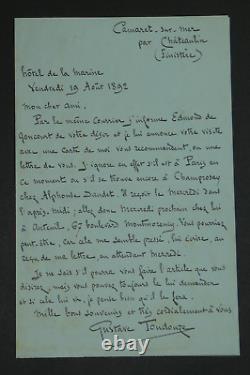 Camaret-sur-mer
par Châteaulin
(Finistère)
hôtel de la marine
Vendredi 19 Août 1892
Mon cher ami,
Par le même courrier j'informe Edmond de
Goncourt de votre désir et je lui annonce votre visite
avec une carte de moi vous recommandant, ou une
lettre de vous. J'ignore en effet s'il est à Paris en
ce moment ou s'il se trouve encore à Champrosay
chez Alphonse Daudet. Il reçoit le Mercredi dans
l'après-midi; allez donc Mercredi prochain chez lui
à Auteuil, 67 boulevard Montmorency. Vous pourriez
peut-être, car cela me semble pressé, lui écrire, au
reçu de ma lettre, en attendant Mercredi.
Je ne sais s'il pourra vous faire l'article que vous
désirez, mais vous pouvez toujours le lui demander
et si cela lui va, je pense bien qu'il le fera.
Mille bons souvenirs et très cordialement à vous
Gustave Toudouze